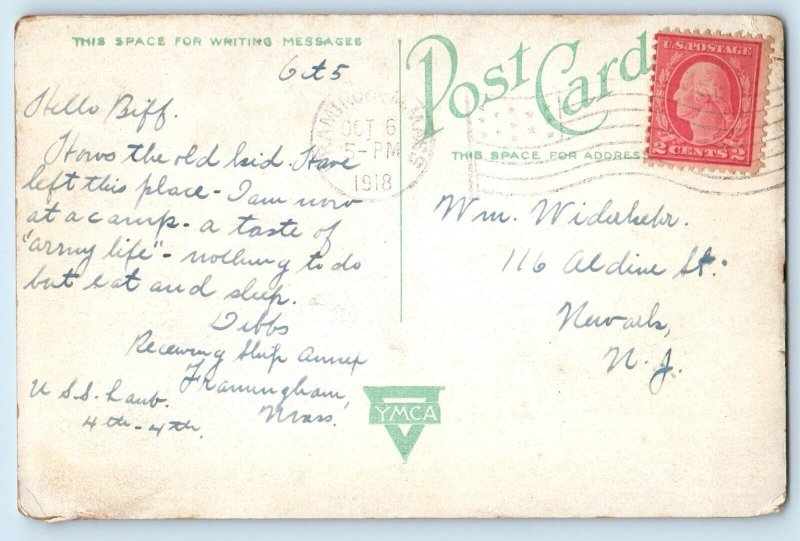 THIS SPACE FOR WRITING MESSAGES
Oct 5
Hello Biff.
Hows the old kid. Have
left this place - I am now
at a camp - a taste of
"army life" - nothing to do
but eat and sleep.
Dibbs
Receiving Ship Annex
Framingham,
Mass.
U.S.S. Laub.
4th - 4th.
FRAMINGHAM, MASS
OCT 6
5-PM
1918
Post Card
THIS SPACE FOR ADDRESS
U.S. POSTAGE
2 CENTS 2
Wm. Widerkehr.
116 Aldine St.
Newark,
N. J.
YMCA